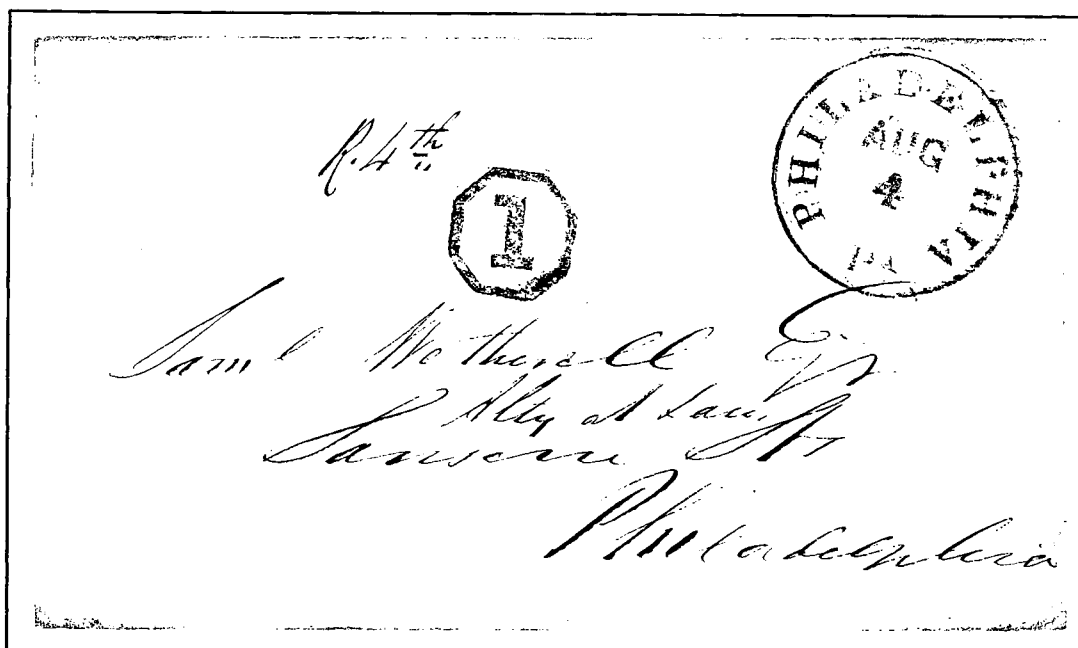 PHILADELPHIA Pa
AUG
4
R. 4th
1
Saml Wetherill Esqr
Atty at Law
Sansom St
Philadelphia